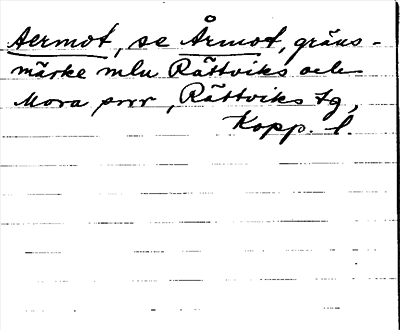 Aermot, se Årmot, gräns-
märke mlu Rättviks och
Mora snr, Rättviks tg,
Kopp. l.